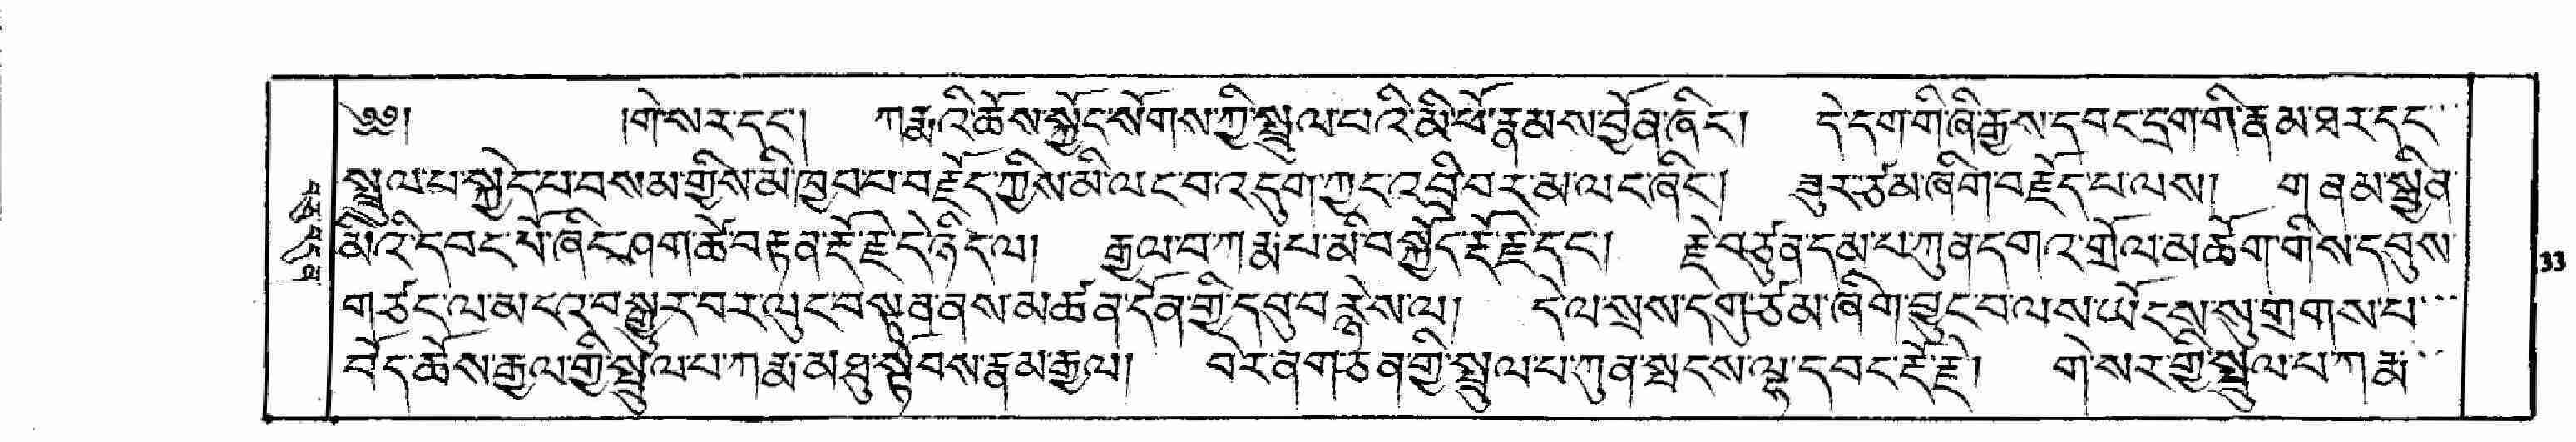 ༄༅། །གེ་སར་དང་། ཀརྨའི་ཆོས་སྐྱོང་སོགས་ཀྱི་སྤྲུལ་པའི་མི་ཕོ་རྣམས་བྱོན་ཞིང་། དེ་དག་གི་ཞི་རྒྱས་དབང་དྲག་གི་རྣམ་ཐར་དང་
སྤྲུལ་པ་སྐྱེད་པ་བསམ་གྱིས་མི་ཁྱབ་པ་བརྗོད་ཀྱིས་མི་ལང་བ་འདུག་ཀྱང་འབྲི་བར་མ་ལང་ཞིང་། ཟུར་ཙམ་ཞིག་བརྗོད་པ་ལས། གནམ་སྐྱིན་
མིའི་དབང་པོ་ཞིང་ཤག་ཚེ་བརྟན་རྡོ་རྗེ་དེ་ཉིད་ལ། རྒྱལ་བ་ཀརྨ་པ་མི་བསྐྱོད་རྡོ་རྗེ་དང་། རྗེ་བཙུན་དམ་པ་ཀུན་དགའ་གྲོལ་མཆོག་གིས་དབུས་
གཙང་ལ་མངའ་བསྒྱུར་བར་ལུང་བསྟན་ནས་མཚན་དོན་གྱི་དབུ་བརྙེས་ལ། དེ་ལ་སྲས་དགུ་ཙམ་ཞིག་བྱུང་བ་ལས་ཡོངས་སུ་གྲགས་པ་
བོད་ཆོས་རྒྱལ་གྱི་སྤྲུལ་པ་ཀརྨ་མཐུ་སྟོབས་རྣམ་རྒྱལ། བེར་ནག་ཅན་གྱི་སྤྲུལ་པ་ཀུན་སྤངས་ལྷ་དབང་རྡོ་རྗེ། གེ་སར་གྱི་སྤྲུལ་པ་ཀརྨ་
33